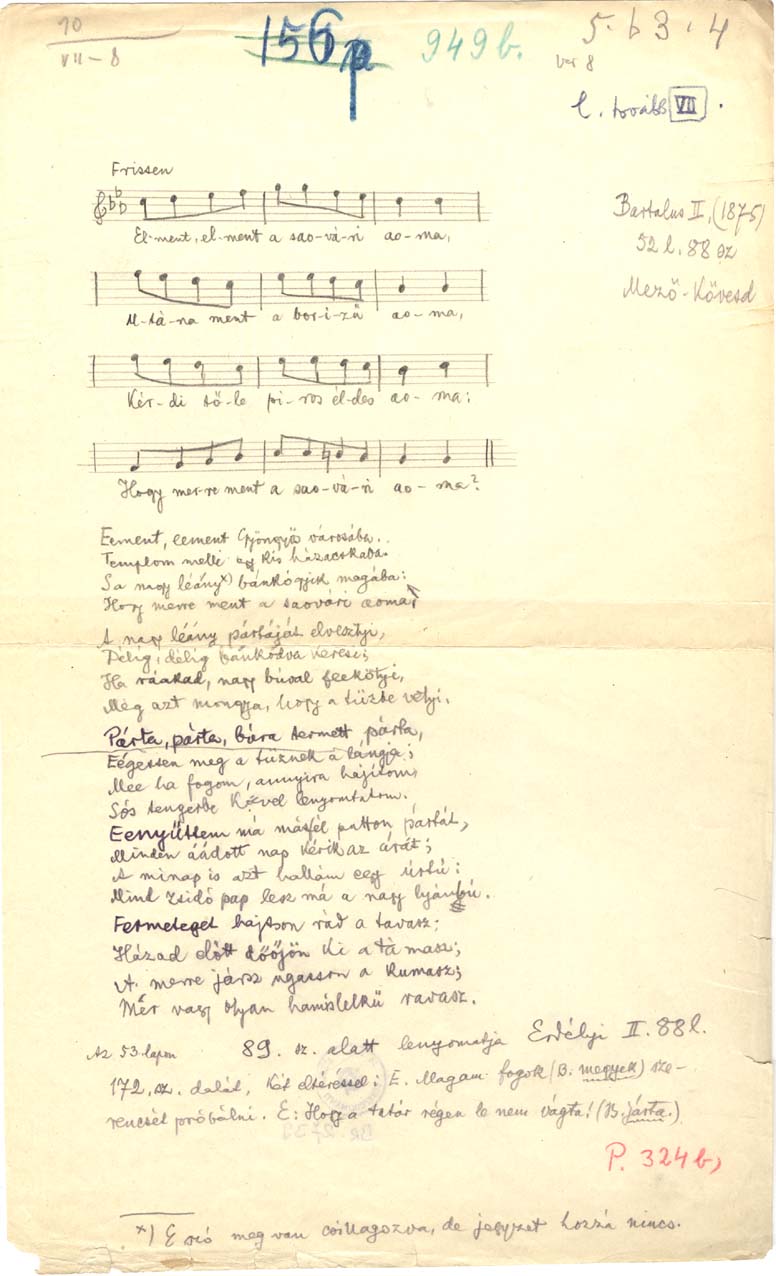 10
VII-8
156p
949b.
5. b3. 4
var 8
l. tovább VII.
Frissen
Bartalus II, (1875)
52 l. 88 sz
Mező-Kövesd
El-ment, el-ment a sao-vá-ri ao-ma,
U-tá-na ment a bor-i-zű ao-ma,
Kér-di tő-le pi-ros él-des ao-ma:
Hogy mer-re ment a sao-vá-ri ao-ma?
Eement, eement Gyöngyö városába.
Templom mellé egy kis házacskába.
Sa nagy léány x) bánkógyik magába:
Hogy merre ment a saovári aoma?
A nagy léány pártáját elvesztyi,
Délig, délig bánkódva keresi;
Ha ráakad, nagy búval feekötyi,
Még azt mongya, hogy a tűzbe vetyi.
Párta, párta, búra termett párta,
Eégessen meg a tűznek a lángja;
Mee ha fogom, annyira hajítom,
Sós tengerbe kővel lenyomtatom.
Eenyűttem má másfél putton pártát,
Minden áádott nap kérik az árát;
A minap is azt hallám eegy úrtú:
Mind zsidó pap lesz má a nagy lyánbú.
Fermeteget hajtson rád a tavasz;
Házad előtt dőőjön ki a támasz;
A merre jársz ugasson a kumasz;
Mér vagy olyan hamislelkű ravasz.
Az 53 lapon 89. sz. alatt lenyomatja Erdélyi II. 88 l.
172. sz. dalát, két eltéréssel: E. Magam fogok (B: megyek) sze-
rencsét próbálni. E: Hogy a tatár régen le nem vágta! (B. járta.)
P. 324b)
x) E szó meg van csillagozva, de jegyzet hozzá nincs.